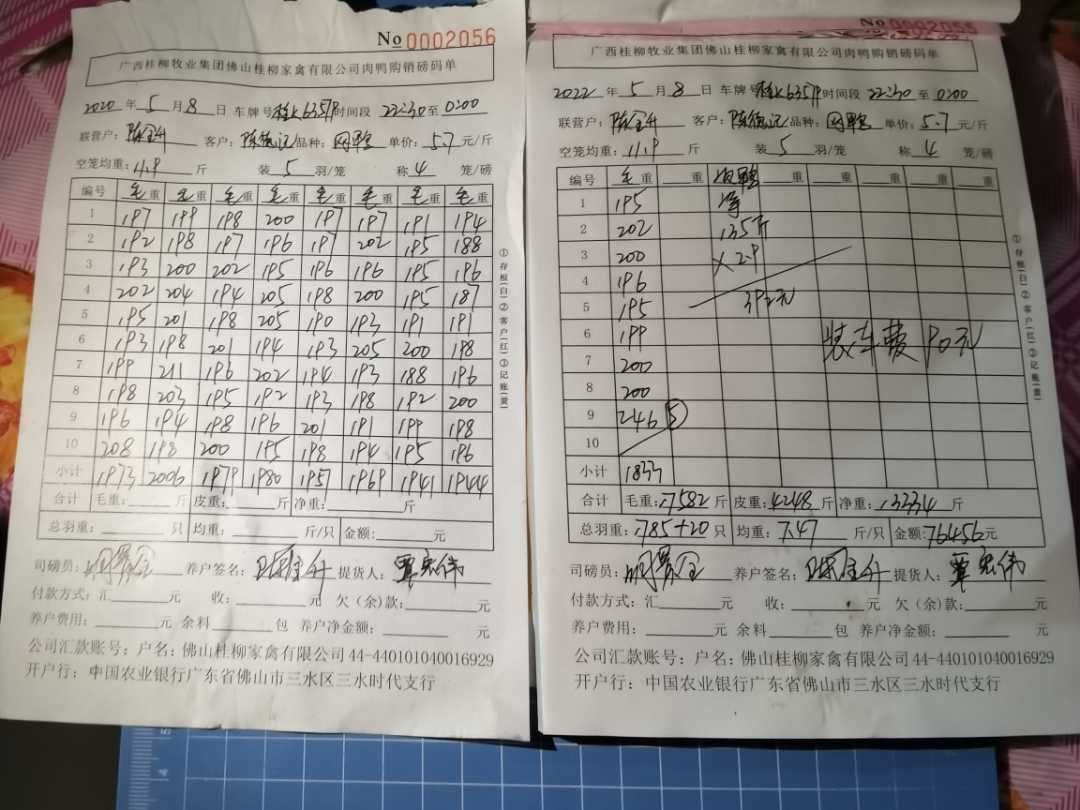 No 0002056
广西桂柳牧业集团佛山桂柳家禽有限公司肉鸭购销磅码单
2020 年 5 月 8 日 车牌号 桂L6357P 时间段 22:30 至 0:00
联营户: 陈金升 客户: 陈德记 品种: 肉鸭 单价: 5.7 元/斤
空笼均重: 11.8 斤 装 5 羽/笼 称 4 笼/磅
编号 毛重 毛重 毛重 毛重 毛重 毛重 毛重 毛重
1 197 199 198 200 197 197 191 194
2 192 198 197 196 197 202 195 188
3 193 200 202 195 196 196 195 196
4 202 204 194 205 198 200 195 187
5 195 201 198 205 190 193 191 191
6 193 198 201 194 193 205 200 198
7 199 211 196 202 194 193 188 196
8 198 203 195 192 193 198 192 200
9 196 194 198 196 201 191 199 198
10 208 198 200 195 198 194 195 196
小计 1973 2006 1979 1980 1957 1969 1941 1944
合计 毛重: 斤 皮重: 斤 净重: 斤
总羽重: 只 均重: 斤/只 金额: 元
司磅员: 养户签名: 陈金升 提货人: 覃宏伟
付款方式: 汇 元 收: 元 欠(余)款: 元
养户费用: 元 余料 包 养户净金额: 元
公司汇款账号: 户名: 佛山桂柳家禽有限公司 44-440101040016929
开户行: 中国农业银行广东省佛山市三水区三水时代支行
①存根(白)②客户(红)③记账(黄)
No 0002055
广西桂柳牧业集团佛山桂柳家禽有限公司肉鸭购销磅码单
2022 年 5 月 8 日 车牌号 桂L6357P 时间段 22:30 至 0:00
联营户: 陈金升 客户: 陈德记 品种: 肉鸭 单价: 5.7 元/斤
空笼均重: 11.8 斤 装 5 羽/笼 称 4 笼/磅
编号 毛重 重 重 重 重 重 重
1 195
2 202 135斤
3 200 ×2.9
4 196
5 195 392元
6 199 装车费90元
7 200
8 200
9 246 ⑤
10
小计 1833
合计 毛重: 17582 斤 皮重: 4248 斤 净重: 13334 斤
总羽重: 1785+20 只 均重: 7.47 斤/只 金额: 76456 元
司磅员: 养户签名: 陈金升 提货人: 覃宏伟
付款方式: 汇 元 收: 元 欠(余)款: 元
养户费用: 元 余料 包 养户净金额: 元
公司汇款账号: 户名: 佛山桂柳家禽有限公司 44-440101040016929
开户行: 中国农业银行广东省佛山市三水区三水时代支行
①存根(白)②客户(红)③记账(黄)